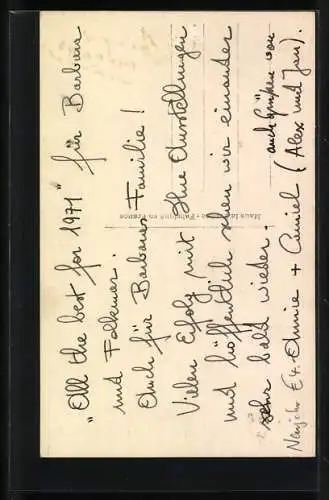 "All the best for 1971" für Barbara
und Folkmar.
Auch für Barbaras Familie!
Vielen Efolg mit Ihre Ausstellungen
und hoffentlich sehen wir einander
sehr bald wieder.
auch Grüßen von
Neujahr Et. + Camiel (Alex und Jan).
Fabriqué en France